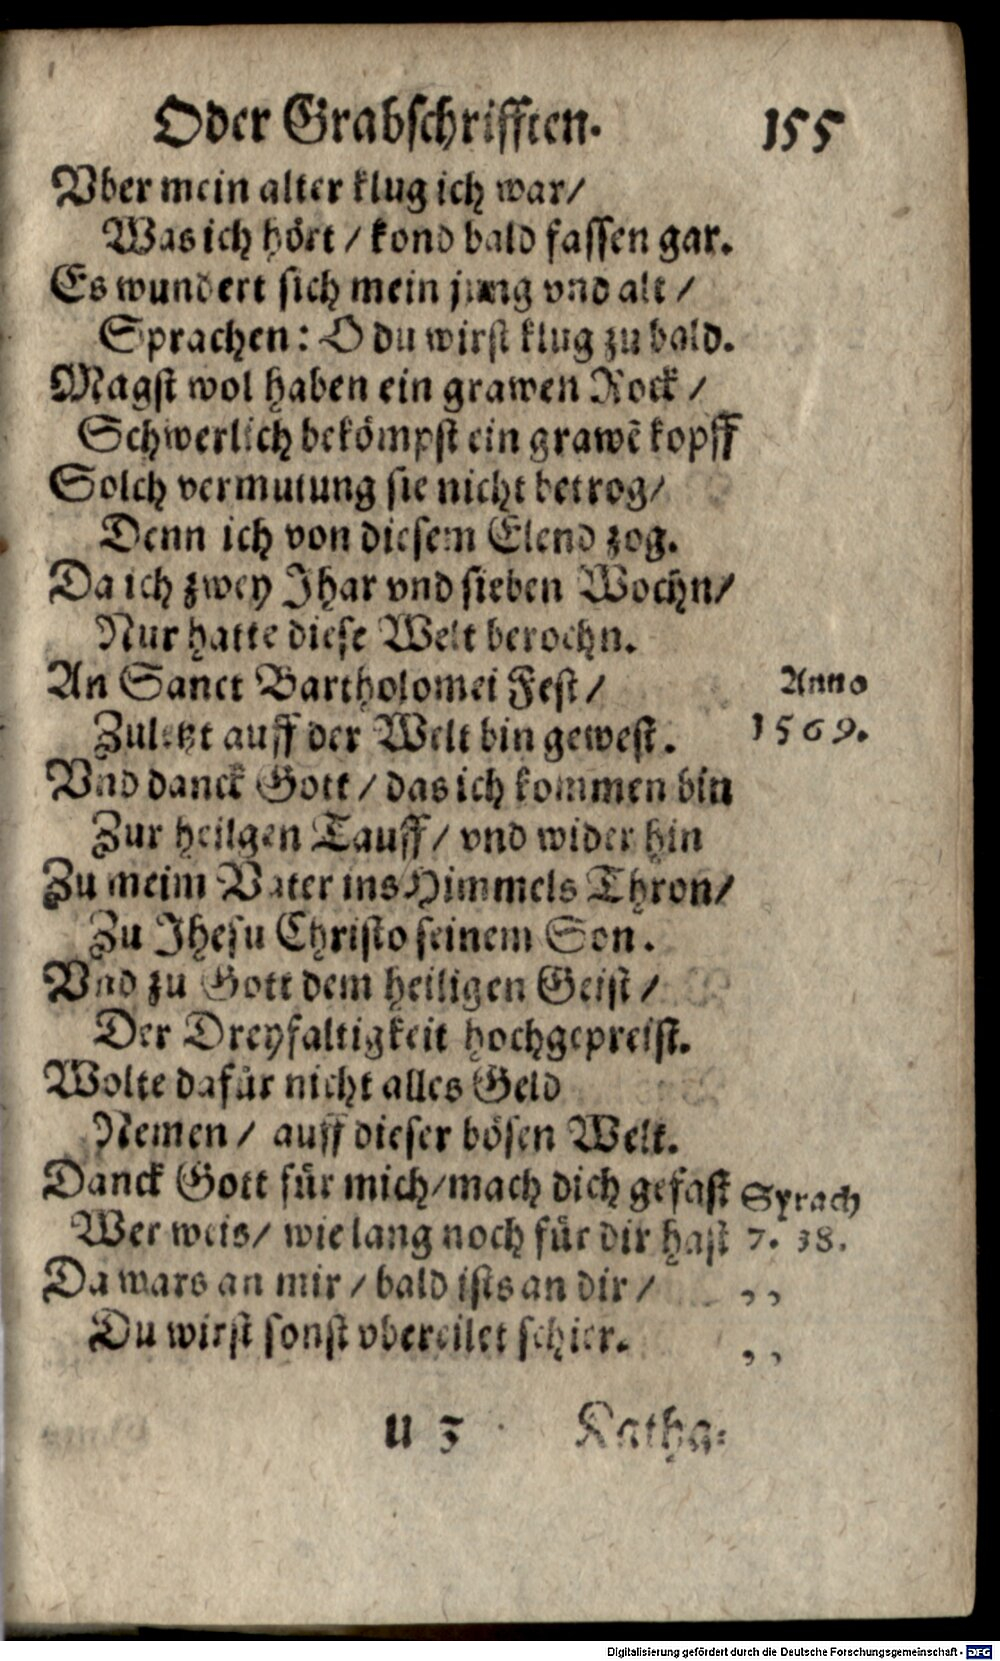 Oder Grabschrifften. 155
Vber mein alter klug ich war/
Was ich hört / kond bald fassen gar.
Es wundert sich mein jung vnd alt /
Sprachen: O du wirst klug zu bald.
Magst wol haben ein grawen Rock /
Schwerlich bekömpst ein grawẽ kopff
Solch vermutung sie nicht betrog/
Denn ich von diesem Elend zog.
Da ich zwey Jhar vnd sieben Wochn/
Nur hatte diese Welt berochn.
An Sanct Bartholomei Fest / Anno
Zuletzt auff der Welt bin gewest. 1569.
Vnd danck Gott / das ich kommen bin
Zur heilgen Tauff/ vnd wider hin
Zu meim Vater ins Himmels Thron/
Zu Jhesu Christo seinem Son.
Vnd zu Gott dem heiligen Geist /
Der Dreyfaltigkeit hochgepreist.
Wolte dafür nicht alles Geld
Nemen / auff dieser bösen Welt.
Danck Gott für mich/mach dich gefast Syrach
Wer weis/ wie lang noch für dir hast 7. 38.
Da wars an mir / bald ists an dir / ,,
Du wirst sonst vbereilet schier. ,,
u 3 Katha⸗
Digitalisierung gefördert durch die Deutsche Forschungsgemeinschaft - DFG